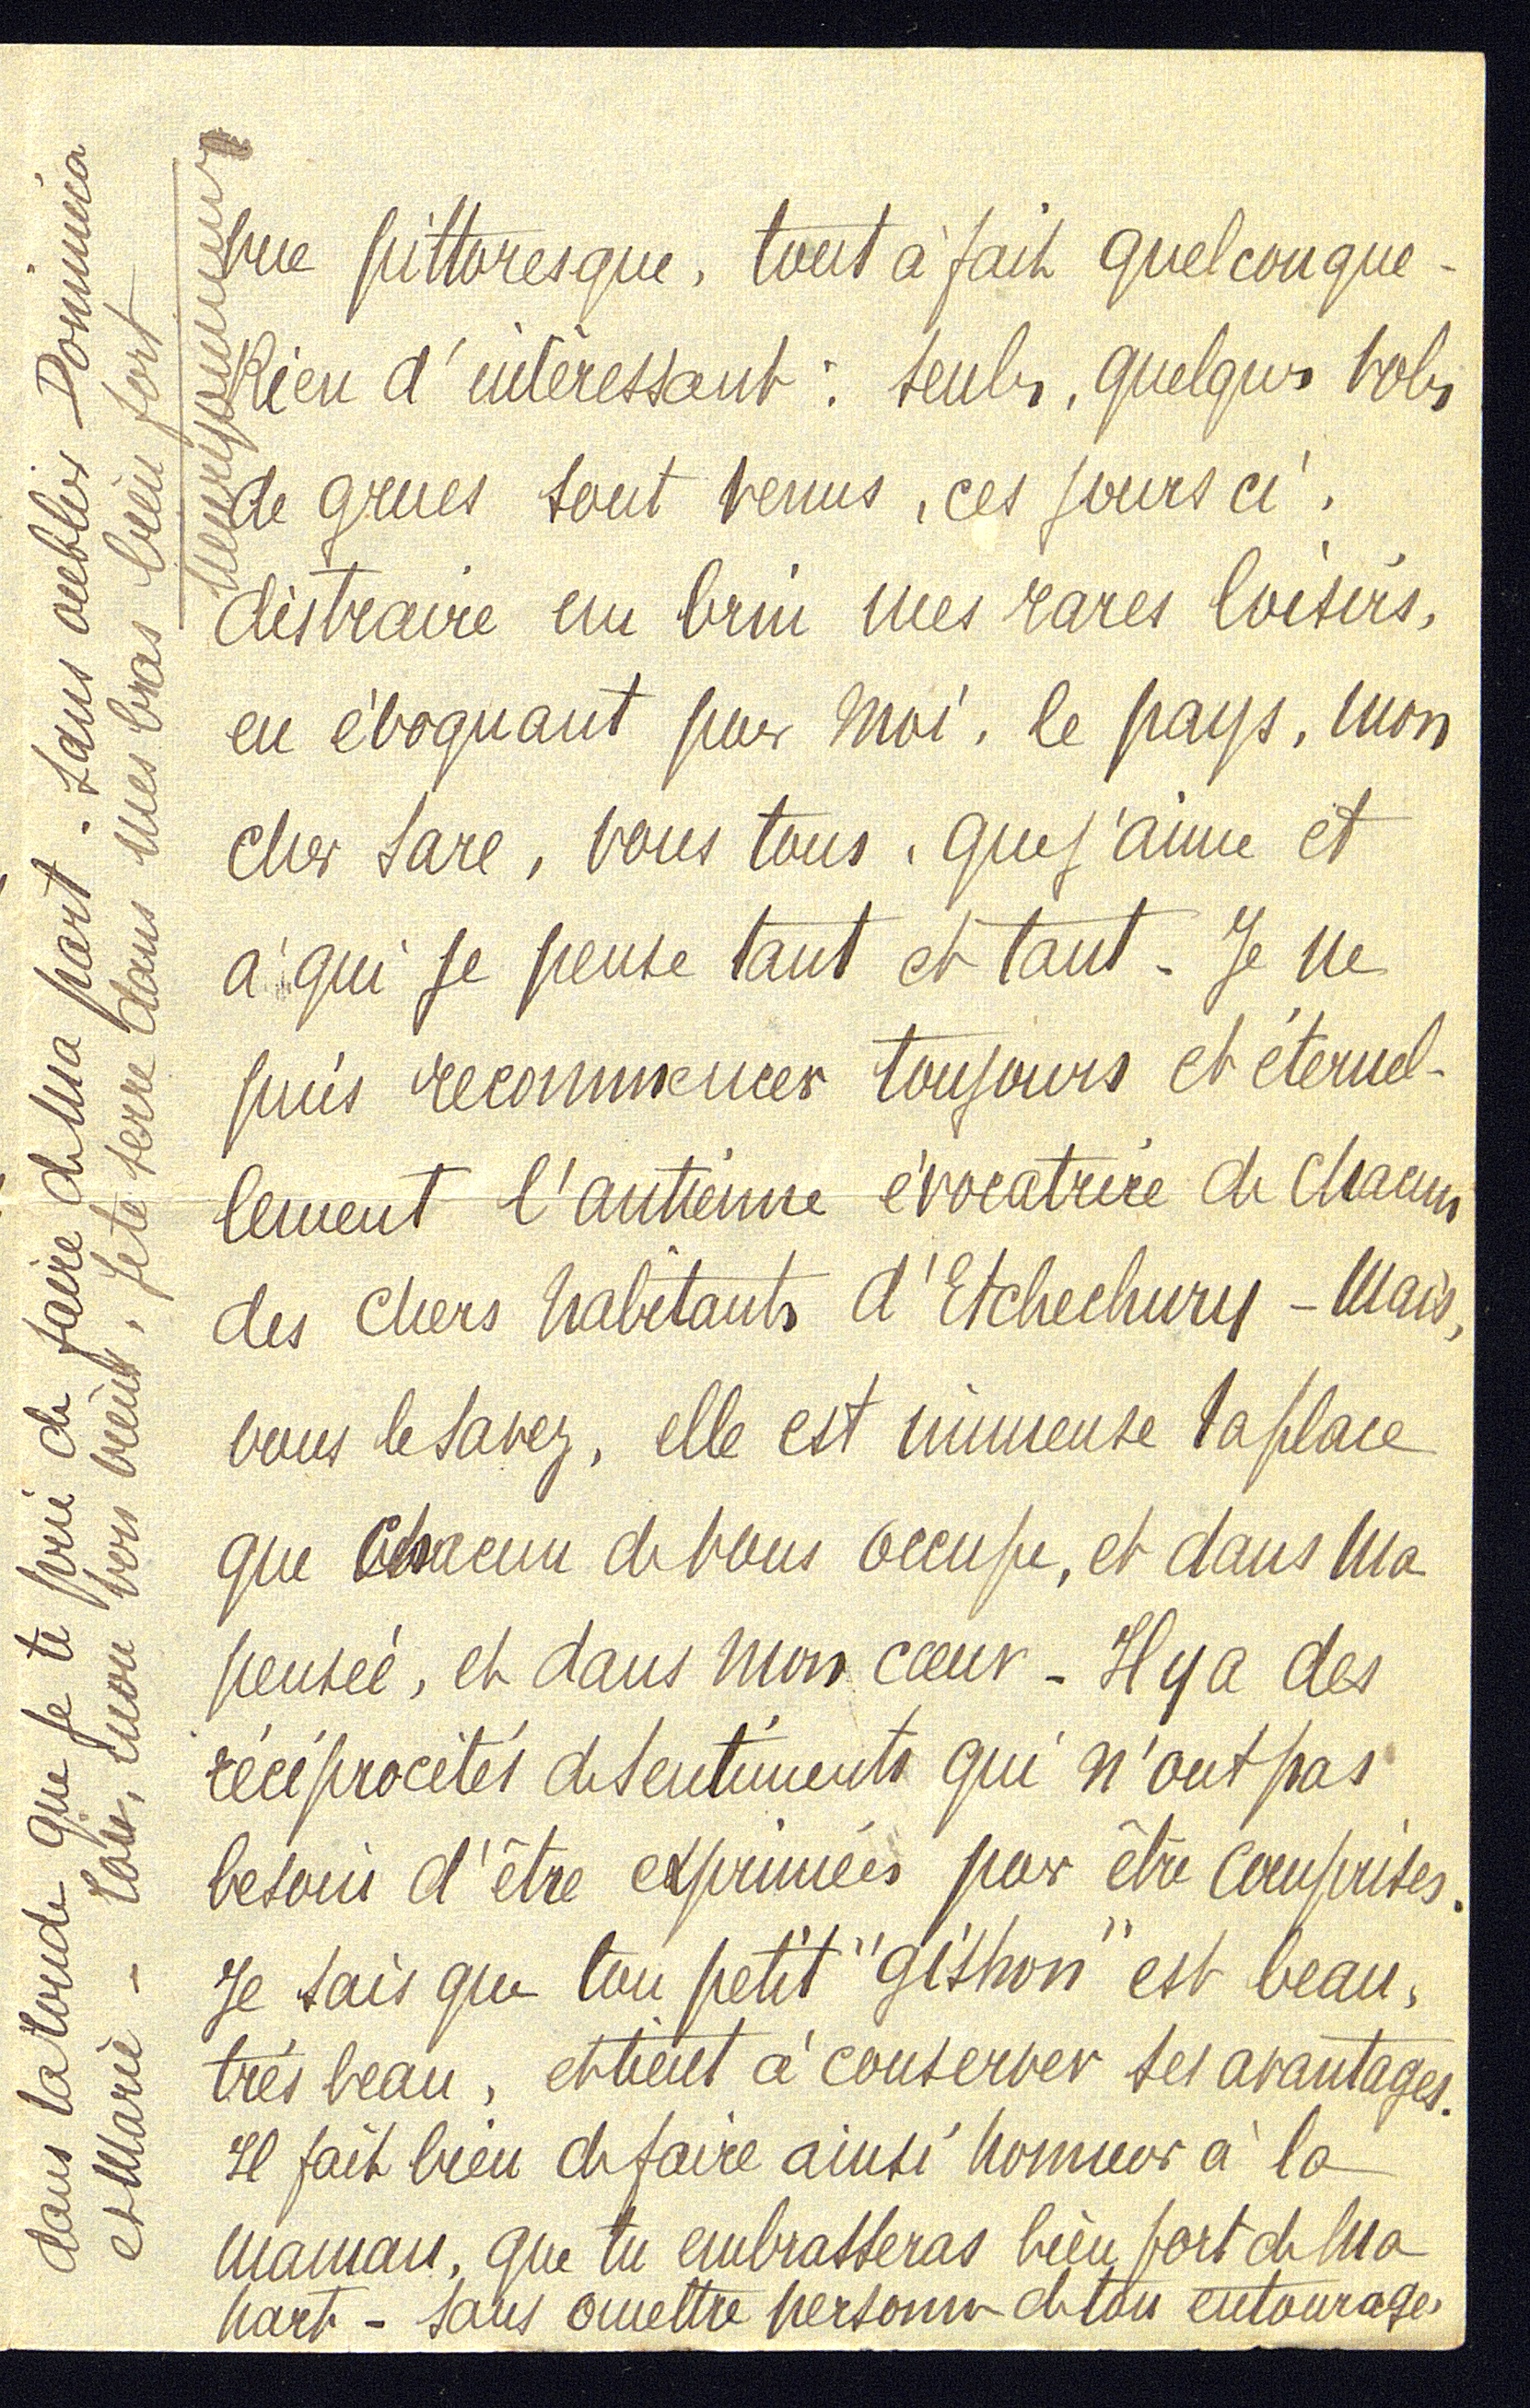 vue pittoresque, tout à fait quelconque -
Rien d'intéressant : seuls, quelques vols
de grues sont venus, ces jours ci,
distraire un brin mes rares loisirs,
en évoquant pour moi, le pays, mon
cher Sare, vous tous, que j'aime et
à qui je pense tant et tant - Je ne
puis recommencer toujours et éternel-
lement l'antienne évocatrice de chacun
des chers habitants d'Etchechury - Mais,
vous le savez, elle est immense la place
que chacun de vous occupe, et dans ma
pensée, et dans mon cœur - Il y a des
réciprocités de sentiments qui n'ont pas
besoin d'être exprimées pour être comprises.
Je sais que ton petit "gishon" est beau,
très beau, et tient à conserver ses avantages.
Il fait bien de faire ainsi honneur à la
maman, que tu embrasseras bien fort de ma
part - sans omettre personne de ton entourage,
dans la tournée que je te prie de faire de ma part - sans oublier Dominica
et Marie - Toi, mon bon vieux, je te serre dans mes bras bien fort